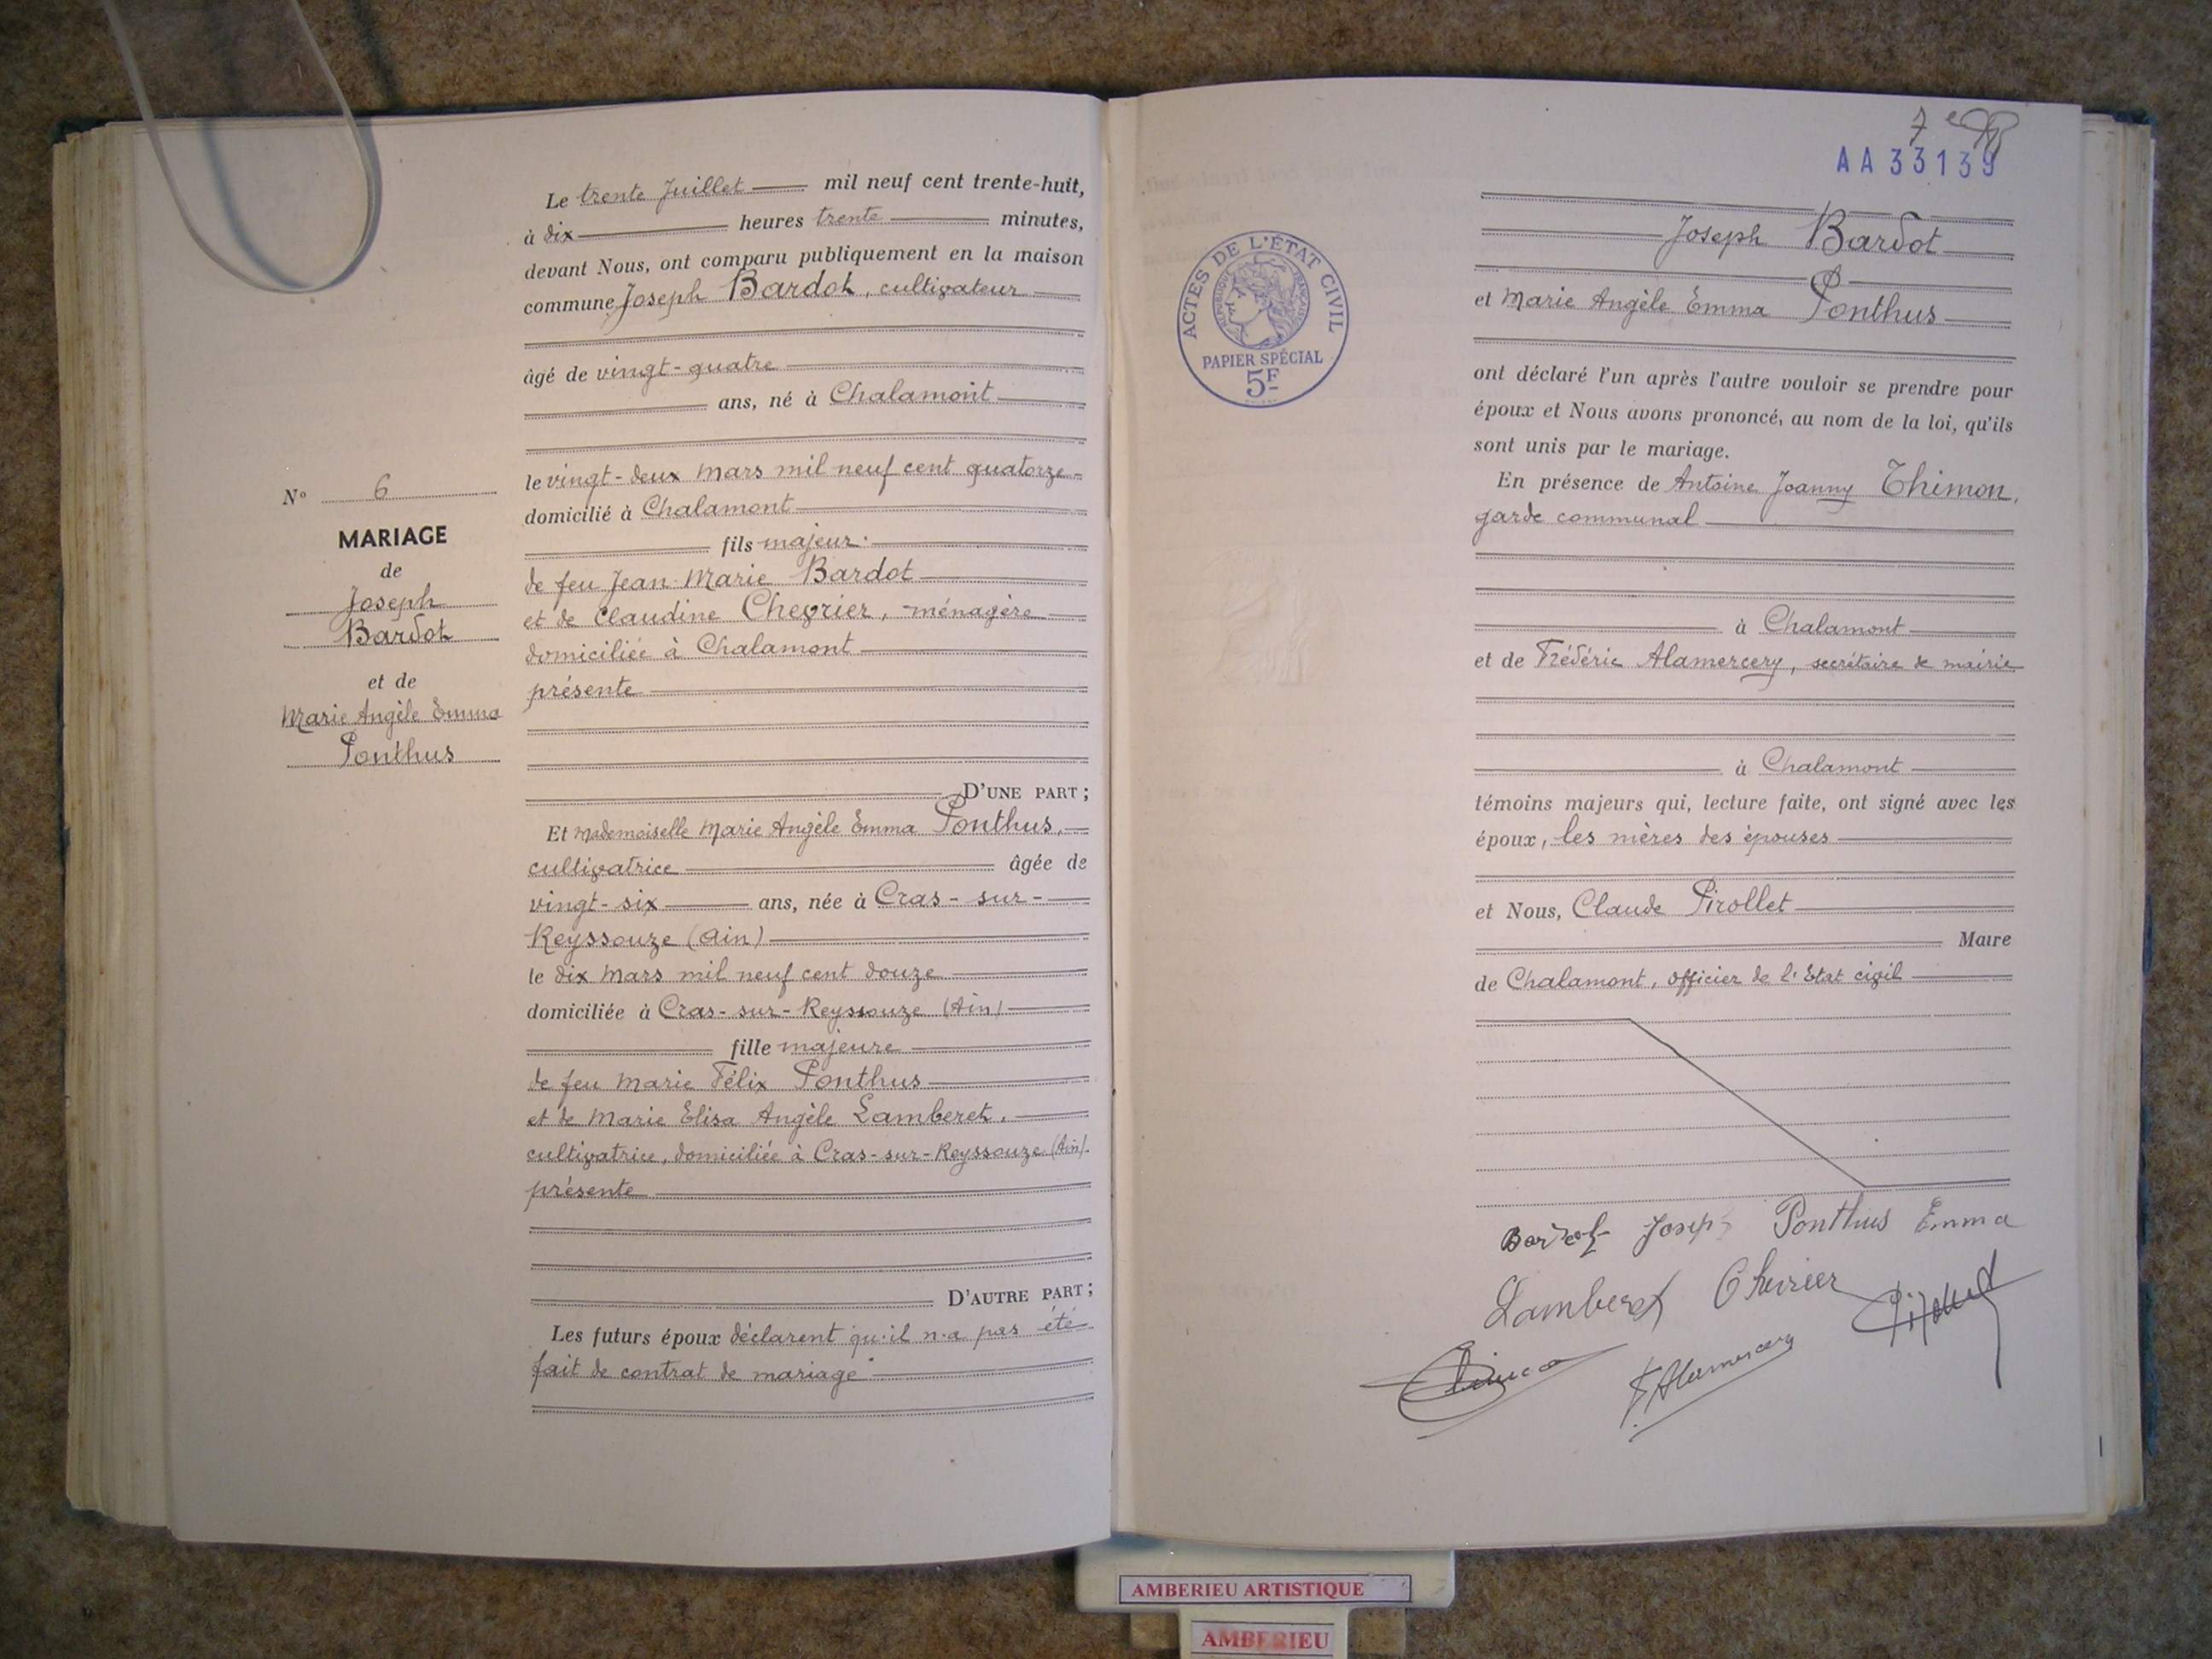 N° 6
MARIAGE
de
Joseph
Bardot
et de
Marie Angèle Emma
Ponthus
Le trente Juillet mil neuf cent trente-huit,
à dix heures trente minutes,
devant Nous, ont comparu publiquement en la maison
commune Joseph Bardot, cultivateur
âgé de vingt-quatre
ans, né à Chalamont
le vingt-deux Mars mil neuf cent quatorze
domicilié à Chalamont
fils majeur
de feu Jean-Marie Bardot
et de Claudine Chevrier, ménagère
domiciliée à Chalamont
présente
D'UNE PART ;
Et Mademoiselle Marie Angèle Emma Ponthus,
cultivatrice âgée de
vingt-six ans, née à Cras-sur-
Reyssouze (Ain)
le dix Mars mil neuf cent douze
domiciliée à Cras-sur-Reyssouze (Ain)
fille majeure
de feu Marie Félix Ponthus
et de Marie Elisa Angèle Lamberet,
cultivatrice, domiciliée à Cras-sur-Reyssouze (Ain).
présente
D'AUTRE PART ;
Les futurs époux déclarent qu'il n'a pas été
fait de contrat de mariage
7e
AA 33139
ACTES DE L'ÉTAT CIVIL
RÉPUBLIQUE FRANÇAISE
PAPIER SPÉCIAL
5F
Joseph Bardot
et Marie Angèle Emma Ponthus
ont déclaré l'un après l'autre vouloir se prendre pour
époux et Nous avons prononcé, au nom de la loi, qu'ils
sont unis par le mariage.
En présence de Antoine Joanny Thimon,
garde communal
à Chalamont
et de Frédéric Alamercery, secrétaire de mairie
à Chalamont
témoins majeurs qui, lecture faite, ont signé avec les
époux, les mères des épouses
et Nous, Claude Pirollet
Maire
de Chalamont, officier de l'Etat civil
Bardot Joseph Ponthus Emma
Lamberet Chevrier Pirollet
F. Alamercery
AMBERIEU ARTISTIQUE
AMBERIEU